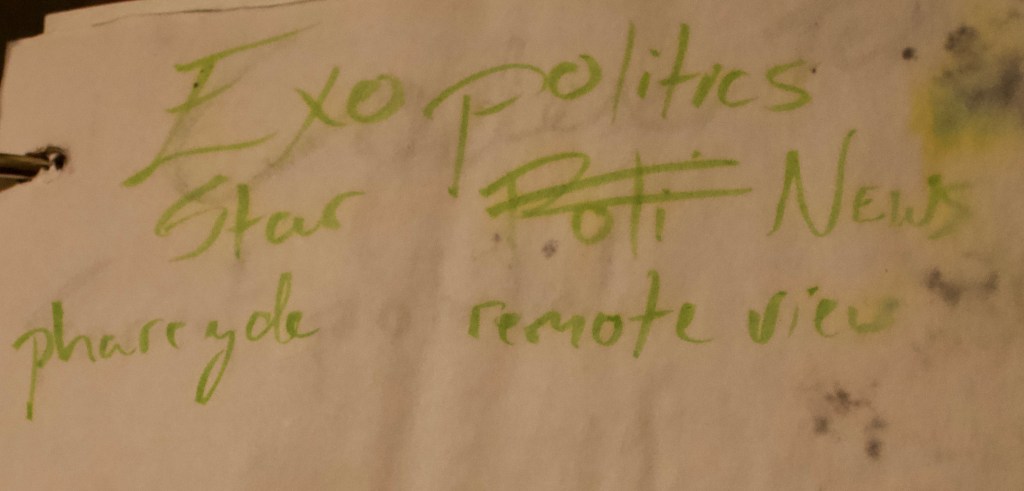 Exopolitics
Star Poli News
pharcyde remote view